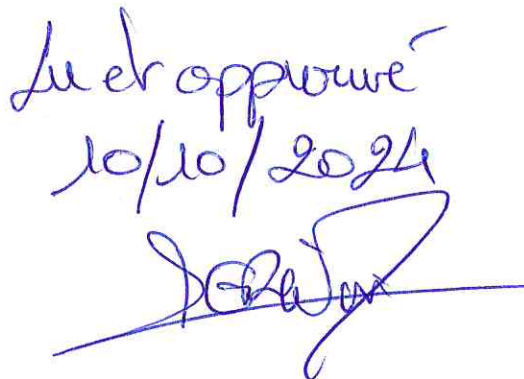 Lu et approuvé
10/10/2024